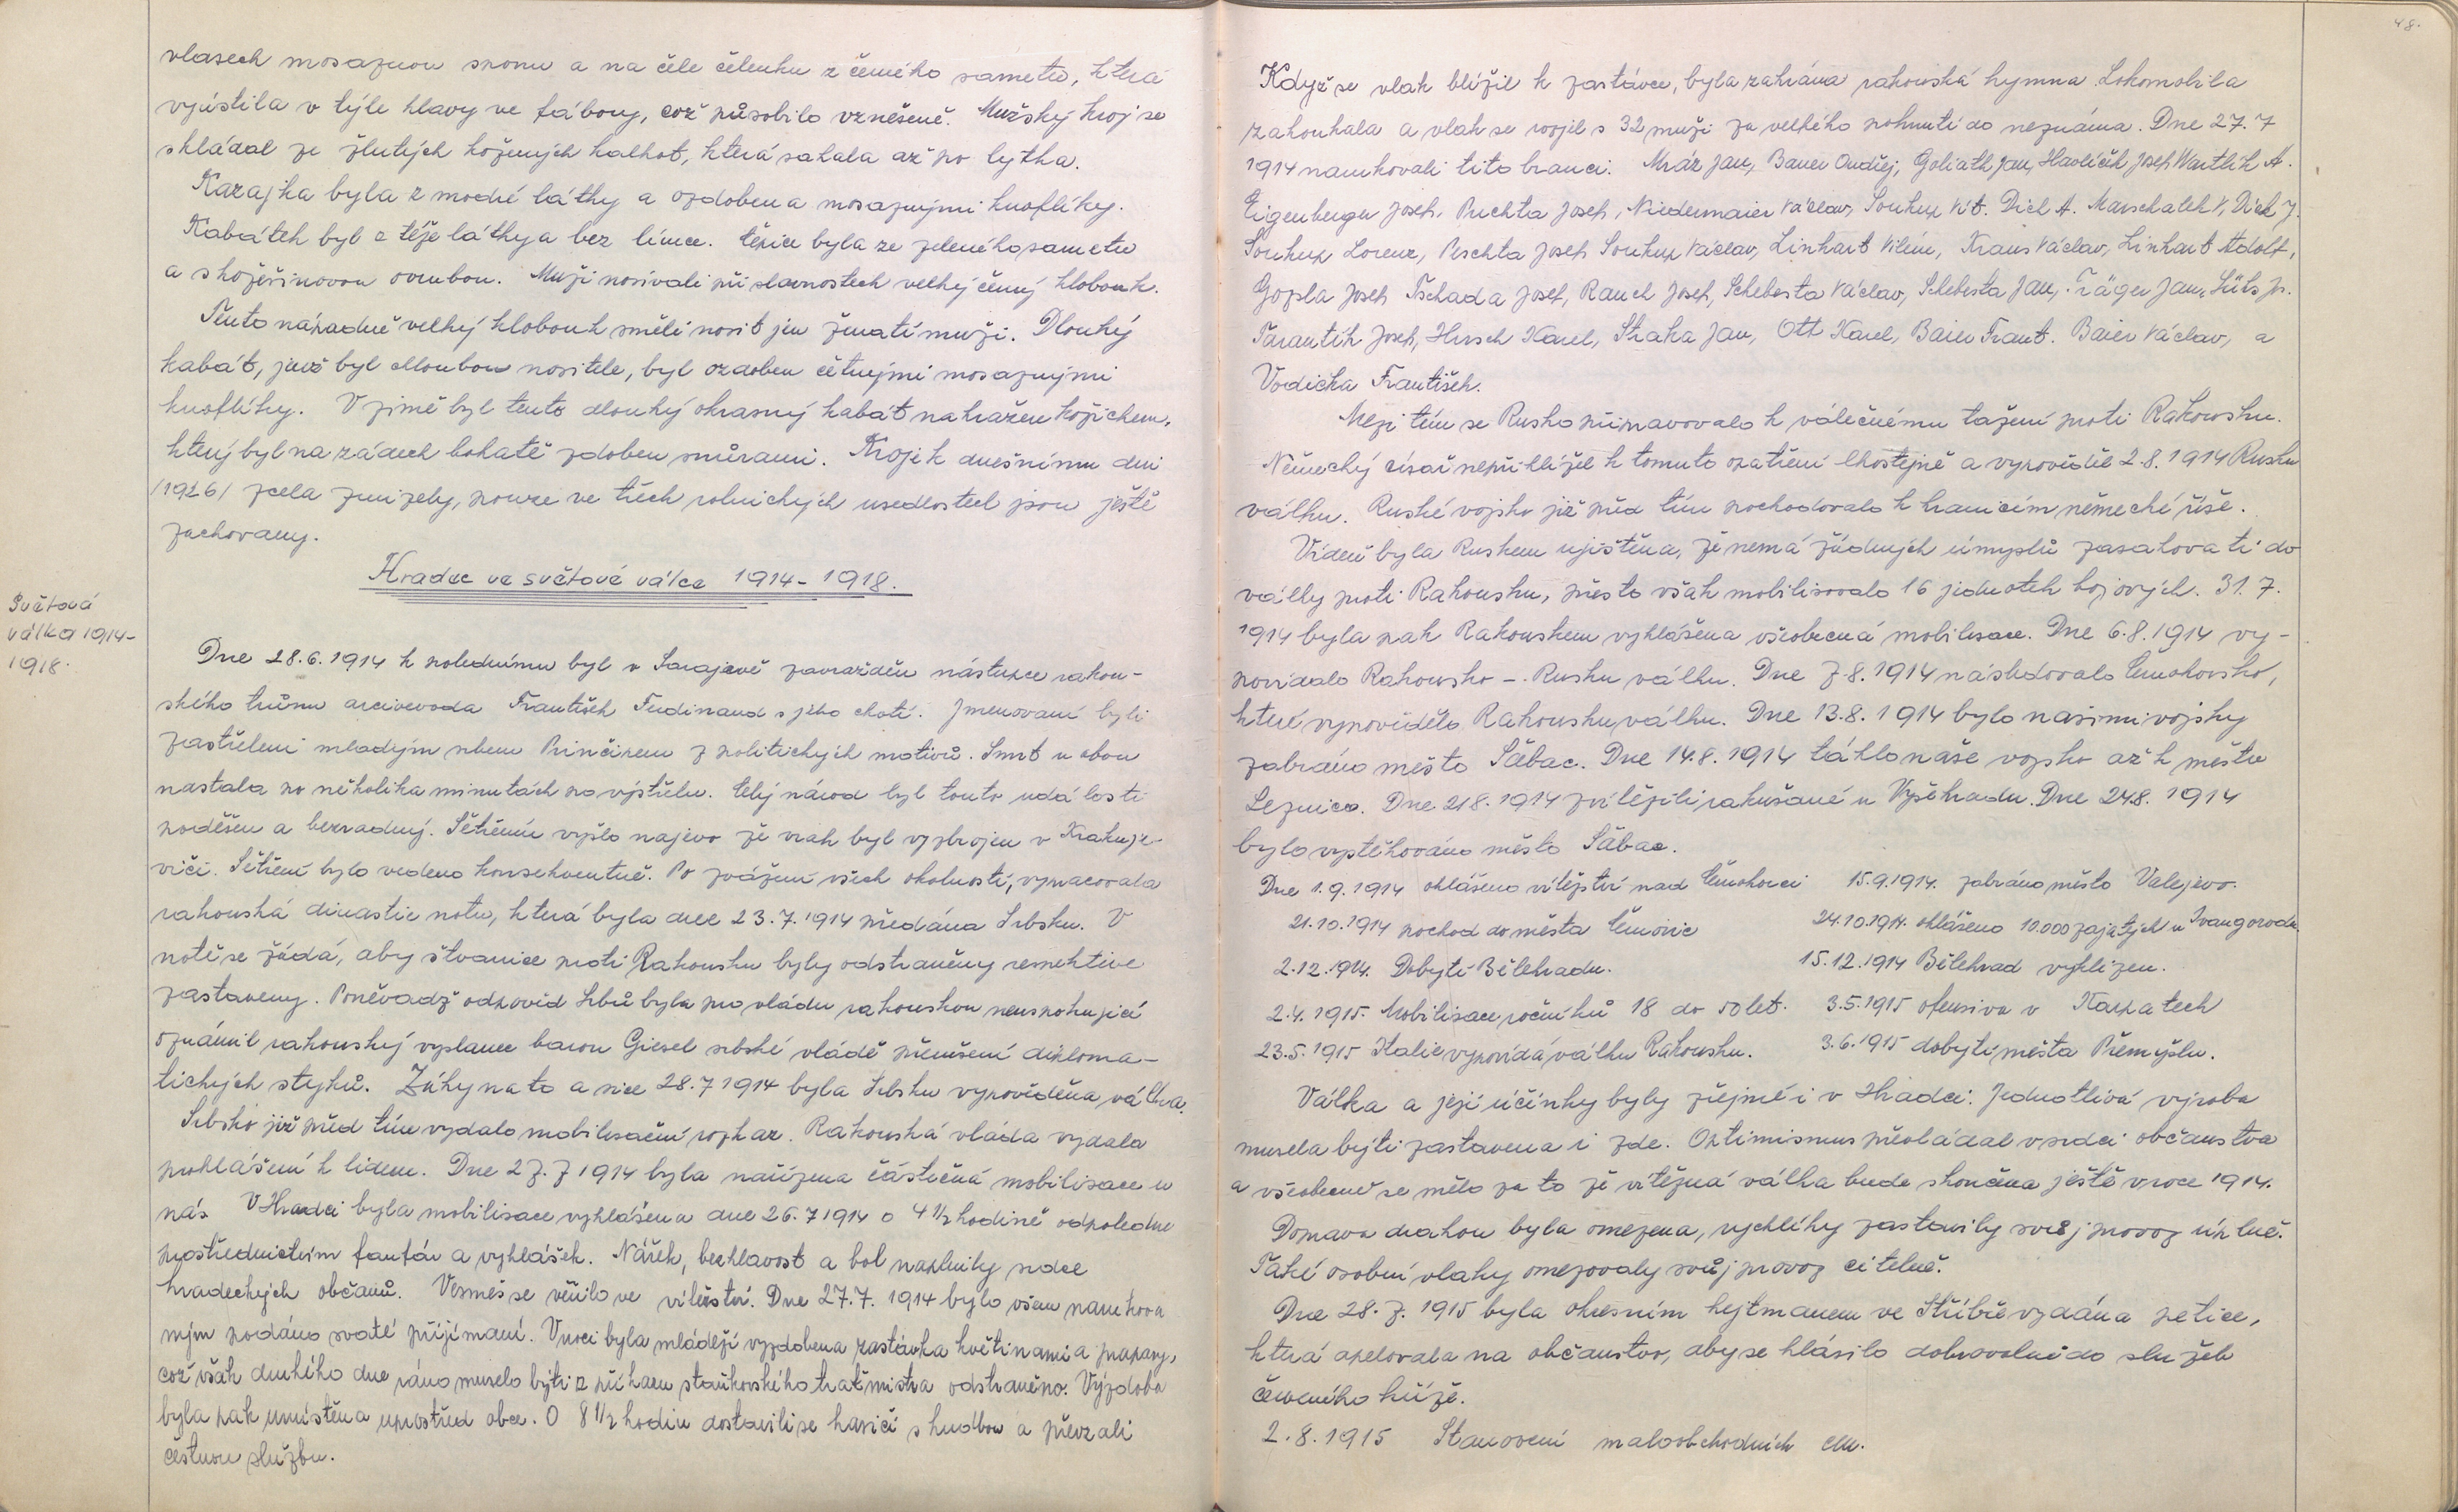 vlasech mosaznou sponu a na čele čelenku z černého sametu, která
vyústila v týle hlavy ve fábory, což působilo vznešeně. Mužský kroj se
skládal ze žlutých kožených kalhot, která sahala až po lytka.
Kazajka byla z modré látky a ozdobena mosaznými knoflíky.
Kabátek byl z téže látky a bez límce. Čepice byla ze zeleného sametu
a s kožešinovou ovrubou. Muži nosívali při slavnostech velký černý klobouk.
Tento nápadně velký klobouk směli nosit jen ženatí muži. Dlouhý
kabát, jenž byl chloubou nositele, byl ozdoben četnými mosaznými
knoflíky. V zimě byl tento dlouhý okrasný kabát nahražen kožichem,
který byl na zádech bohatě zdoben šnůrami. Kroje k dnešnímu dni
/1926/ zcela zmizely, pouze ve třech rolnických usedlostech jsou ještě
zachovany.
Hradec ve světové válce 1914-1918.
Světová
válka 1914-
1918.
Dne 28.6.1914 k polednímu byl v Sarajevě zavražděn nástupce rakou-
ského trůnu arcivevoda František Ferdinand s jeho chotí. Jmenovaní byli
zastřeleni mladým srbem Prinčipem z politických motivů. Smrt u obou
nastala po několika minutách po výstřelu. Celý národ byl touto událostí
poděšen a bezradný. Šetřením vyšlo najevo že vrah byl vyzbrojen v Kraguje-
viči. Šetření bylo vedeno konsekventně. Po zvážení všech okolností, vypracovala
rakouská dinastie notu, která byla dne 23.7.1914 předána Srbsku. V
notě se žádá, aby štvanice proti Rakousku byly odstraněny respektive
zastaveny. Poněvadž odpověd Srbů byla pro vládu rakouskou neuspokující
oznámil rakouský vyslanec baron Giesel srbské vládě přerušení diploma-
tických styků. Záhy na to a sice 28.7 1914 byla Srbsku vypověděna válka.
Srbsko již před tím vydalo mobilisační rozkaz. Rakouská vláda vydala
prohlášení k lidem. Dne 27.7 1914 byla nařízena částečná mobilisace u
nás. V Hradci byla mobilisace vyhlášena dne 26.7 1914 o 4 1/2 hodině odpoledne
prostřednictvím fanfár a vyhlášek. Nářek, bezhlavost a bol naplnily srdce
hradeckých občanů. Vesměs se věřilo ve vítězství. Dne 27.7. 1914 bylo všem narukova
ným podáno svaté přijímaní. V noci byla mládeží vyzdobena zastávka květinami a prapory,
což však druhého dne ráno muselo býti z příkazu staňkovského traťmistra odstraněno. Výzdoba
byla pak umístěna uprostřed obce. O 8 1/2 hodin dostavili se hasiči s hudbou a převzali
čestnou službu.
48.
Když se vlak blížil k zastávce, byla zahrána rakouská hymna. Lokomobila
zahoukala a vlak se rozjel s 32 muži za velkého pohnutí do neznáma. Dne 27.7
1914 narukovali tito branci: Mráz Jan, Bauer Ondřej, Goliath Jan, Havlíček Josef, Wartlik A.
Eigenberger Josef, Puchta Josef, Niedermaier Václav, Soukup Vít. Dick A. Marschalek V, Dick J.
Soukup Lorenz, Peschta Josef, Soukup Václav, Linhart Vilém, Kraus Václav, Linhart Adolf,
Gopla Josef, Tschada Josef, Rauch Josef, Schebesta Václav, Schebesta Jan, Träger Jan, Süts Js.
Tarantík Josef, Hirsch Karel, Straka Jan, Ott Karel, Baier Frant. Baier Václav, a
Vodička František.
Mezi tím se Rusko připravovalo k válečnému tažení proti Rakousku.
Německý císař nepřihlížel k tomuto opatření lhostejně a vypověděl 2.8.1914 Rusku
válku. Ruské vojsko již před tím pochodovalo k hranicím německé říše.
Vídeň byla Ruskem ujištěna, že nemá žádných úmyslů zasahovati do
války proti Rakousku, přesto však mobilisovalo 16 jednotek bojových. 31.7.
1914 byla pak Rakouskem vyhlášena všeobecná mobilisace. Dne 6.8.1914 vy-
povídalo Rakousko - Rusku válku. Dne 7.8.1914 následovalo Černohorsko,
které vypovědělo Rakousku válku. Dne 13.8.1914 bylo našimi vojsky
zabráno město Šabac. Dne 14.8.1914 táhlo naše vojsko až k městu
Leznica. Dne 21.8.1914 zvítězili rakušané u Vyšehradu. Dne 24.8. 1914
bylo vystěhováno město Šabac.
Dne 1.9.1914 ohlášeno vítězství nad Černohorci 15.9.1914. zabráno město Valejevo.
21.10.1914 pochod do města Černovic 24.10.1914. ohlášeno 10.000 zajatých u Ivangorodu
2.12.1914. Dobytí Bělehradu. 15.12.1914 Bělehrad vyklizen.
2.4.1915. Mobilisace ročníků 18 do 50 let. 3.5.1915 ofensiva v Karpatech
23.5.1915 Italie vypovídá válku Rakousku. 3.6.1915 dobytí města Přemyšlu.
Válka a její účinky byly zřejmé i v Hradci. Jednotlivá výroba
musela býti zastavena i zde. Optimismus převládal v srdci občanstva
a všeobecně se mělo za to že vítězná válka bude skončena ještě v roce 1914.
Doprava drahou byla omezena, rychlíky zastavily svůj provoz úplně.
Také osobní vlaky omezovaly svůj provoz citelně.
Dne 28.7.1915 byla okresním hejtmanem ve Stříbře vydána petice,
která apelovala na občanstvo, aby se hlásilo dobrovolně do služeb
červeného kříže.
2.8.1915 Stanovení maloobchodních cen.